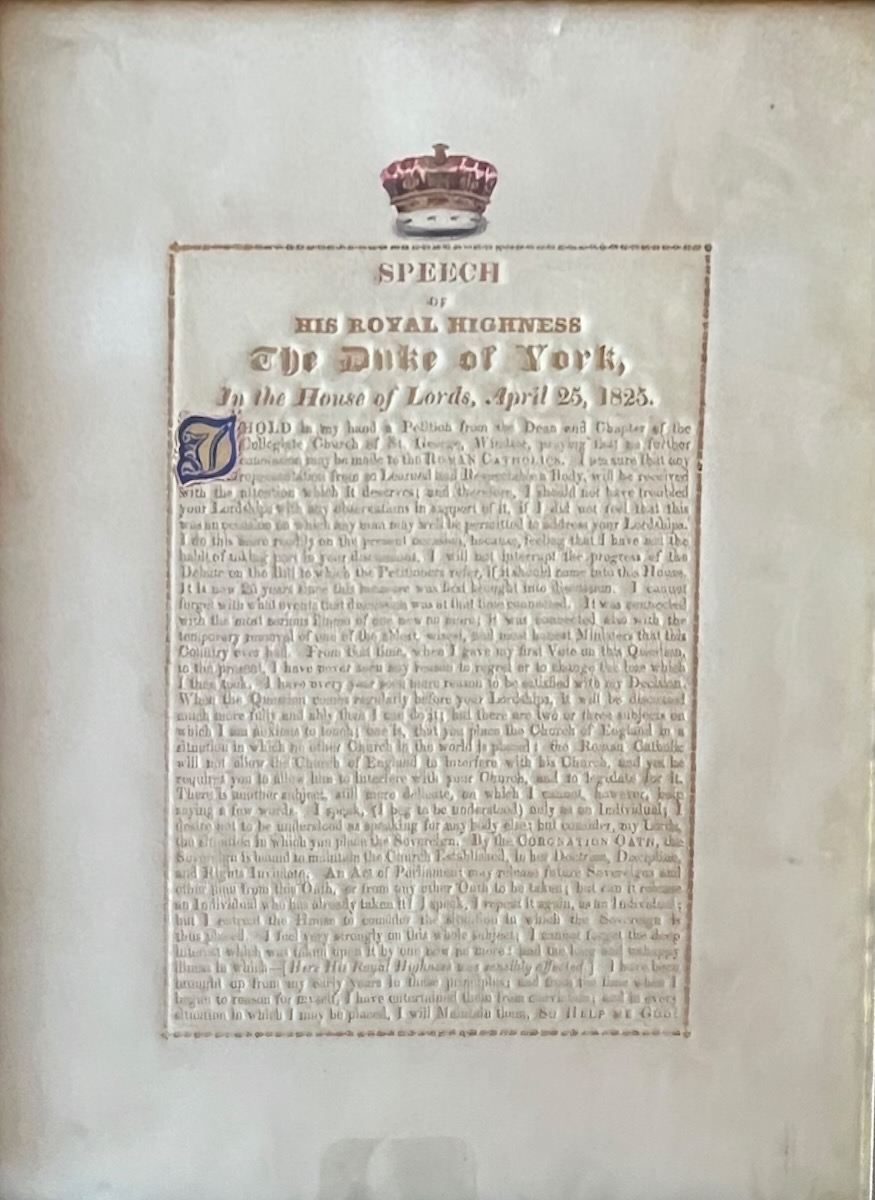 SPEECH
OF
HIS ROYAL HIGHNESS
The Duke of York,
In the House of Lords, April 25, 1825.
I HOLD in my hand a Petition from the Dean and Chapter of the
Collegiate Church of St. George, Windsor, praying that no further
concession may be made to the ROMAN CATHOLICS. I am sure that any
representation from so Learned and Respectable a Body, will be received
with the attention which it deserves; and therefore, I should not have troubled
your Lordships with any observations in support of it, if I did not feel that this
was an occasion on which any man may well be permitted to address your Lordships.
I do this more readily on the present occasion, because, feeling that I have not the
habit of taking part in your discussions, I will not interrupt the progress of the
Debate on the Bill to which the Petitioners refer, if it should come into this House.
It is now 25 years since this measure was first brought into discussion. I cannot
forget with what events that discussion was at that time connected. It was connected
with the most serious illness of one now no more; it was connected also with the
temporary removal of one of the ablest, wisest, and most honest Ministers that this
Country ever had. From that time, when I gave my first Vote on this Question,
to the present, I have never seen any reason to regret or to change the line which
I then took. I have every year seen more reason to be satisfied with my Decision.
When the Question comes regularly before your Lordships, it will be discussed
much more fully and ably than I can do it; but there are two or three subjects on
which I am anxious to touch; one is, that you place the Church of England in a
situation in which no other Church in the world is placed: the Roman Catholic
will not allow the Church of England to interfere with his Church, and yet he
requires you to allow him to interfere with your Church, and to legislate for it.
There is another subject, still more delicate, on which I cannot, however, help
saying a few words. I speak, (I beg to be understood) only as an Individual; I
desire not to be understood as speaking for any body else; but consider, my Lords,
the situation in which you place the Sovereign. By the CORONATION OATH, the
Sovereign is bound to maintain the Church Established, in her Doctrine, Discipline,
and Rights Inviolate. An Act of Parliament may release future Sovereigns and
other men from this Oath, or from any other Oath to be taken; but can it release
an Individual who has already taken it? I speak, I repeat it again, as an Individual;
but I entreat the House to consider the situation in which the Sovereign is
thus placed. I feel very strongly on this whole subject; I cannot forget the deep
interest which was taken upon it by one now no more; and the long and unhappy
illness in which—[Here His Royal Highness was sensibly affected] I have been
brought up from my early years in these principles; and from the time when I
began to reason for myself, I have entertained them from conviction; and in every
situation in which I may be placed, I will Maintain them, SO HELP ME GOD!